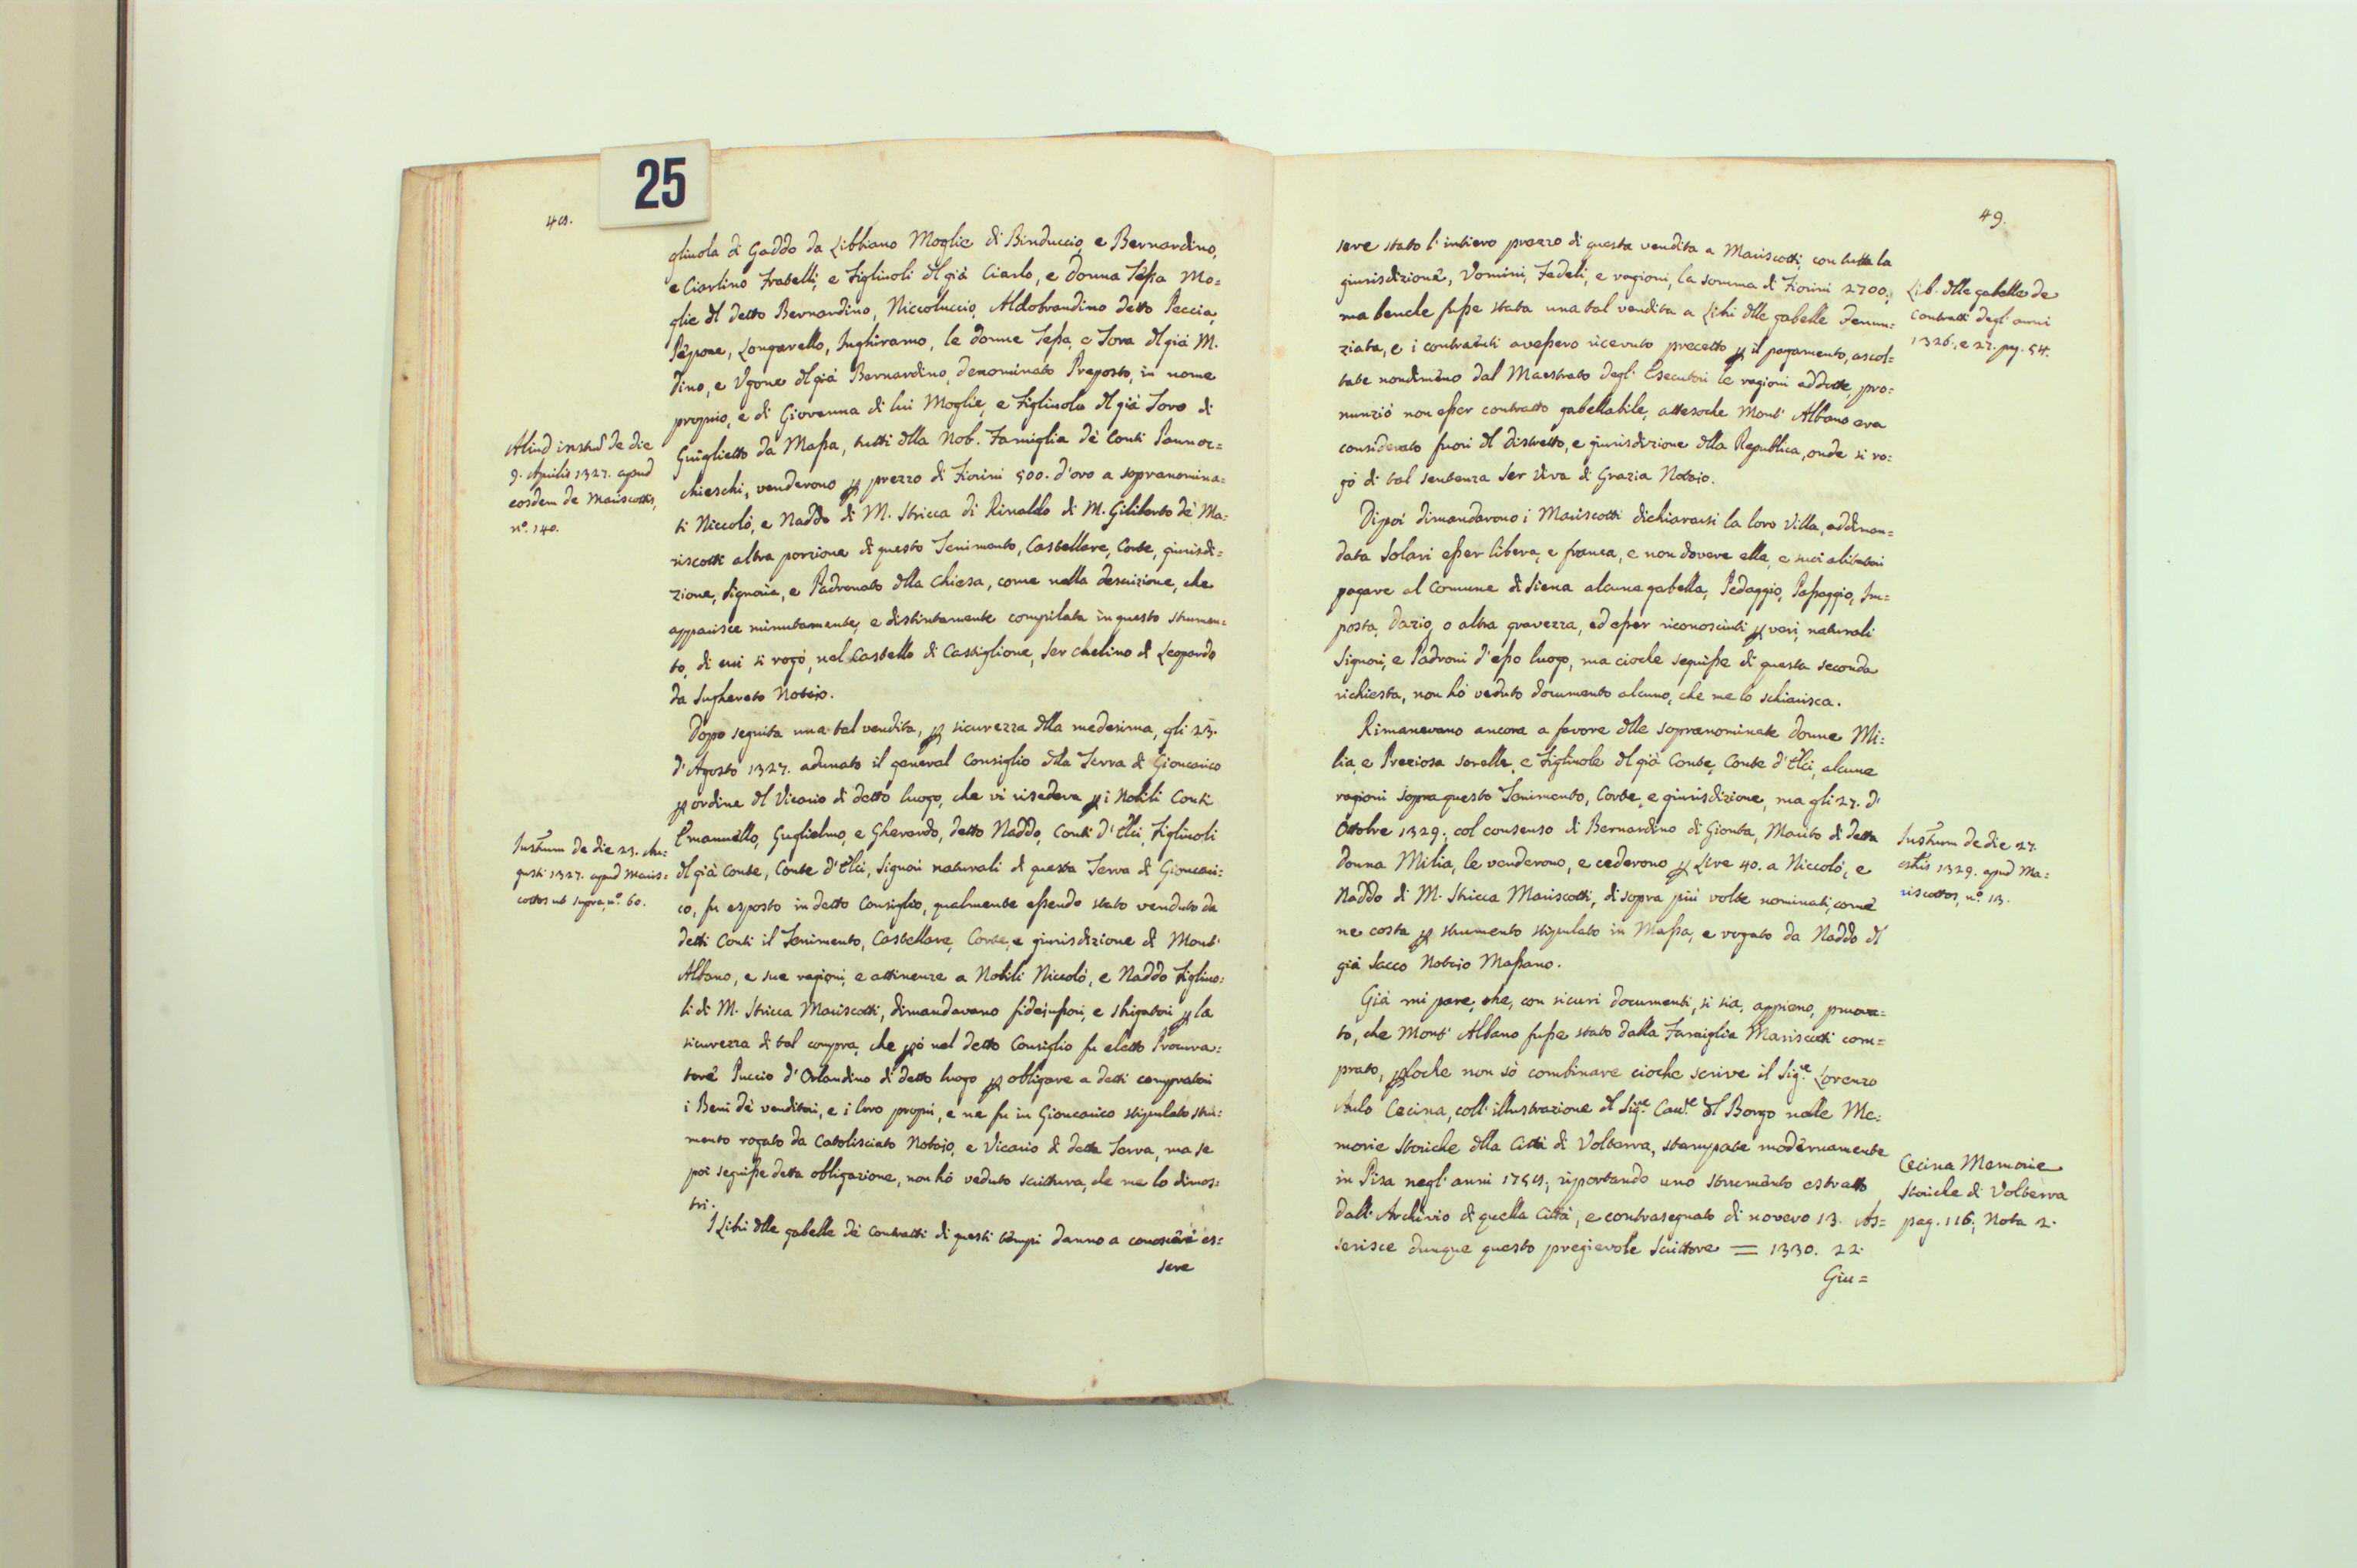 25
48.
gliuola di Gaddo da Libbiano Moglie di Binduccio, e Bernardino,
e Ciarlino Fratelli, e Figliuoli dl già Ciarlo, e Donna Teßa Mo=
glie dl detto Bernardino, Niccoluccio, Aldobrandino detto Peccia,
Pepone, Longarello, Inghiramo, le donne Teßa, e Tora dl già M.
Dino, e Ugone dl già Bernardino, denominato Preposto, in nome
proprio, e di Giovanna di lui Moglie, e Figliuola dl già Toro di
Guiglietto da Maßa, tutti dlla Nob. Famiglia dè Conti Pannoc=
chieschi, venderono p prezzo di Fiorini 500. d'oro a sopranomina=
ti Niccolò, e Naddo di M. Stricca di Rinaldo di M. Giliberto dè Ma=
riscotti altra porzione di questo Tenimento, Castellare, Corte, giurisdi=
zione, Signoria, e Padronato dlla Chiesa, come nella descrizione, che
apparisce minutamente, e distintamente compilata in questo strumen=
to, di cui si rogò, nel Castello di Castiglione, Ser Chelino di Leopardo
da Sughereto Notajo.
Aliud instrum de die
9. Aprilis 1327. apud
eosdem de Mariscottis,
nº. 140.
Dopo seguita una tal vendita, p sicurezza dlla medesima, gli 23.
d'Agosto 1327. adunato il general Consiglio dlla Terra di Gioncarico
p ordine dl Vicario di detto luogo, che vi risedeva p i Nobili Conti
Emanuello, Guglielmo, e Gherardo, detto Naddo, Conti d'Elci, Figliuoli
dl già Conte, Conte d'Elci, Signori naturali di questa Terra di Gioncari=
co, fu esposto in detto Consiglio, qualmente eßendo stato venduto da
detti Conti il Tenimento, Castellare, Corte, e giurisdizione di Mont'
Albano, e sue ragioni, e attinenze a Nobili Niccolò, e Naddo Figliuo=
li di M. Stricca Mariscotti, dimandavano fidejußori, e obligatori p la
sicurezza di tal compra, che pò nel detto Consiglio fu eletto Procura=
tore Puccio d'Orlandino di detto luogo p obligare a detti compratori
i Beni dè venditori, e i loro proprj, e ne fu in Gioncarico stipulato stru=
mento rogato da Catolisciato Notajo, e Vicario di detta Terra, ma se
poi seguiße detta obligazione, non hò veduto scrittura, che me lo dimos=
tri.
Instrum de die 23. Au=
gusti 1327. apud Maris=
cottos ut supra, nº. 60.
I Libri dlle gabelle dè Contratti di questi tempi danno a conoscere es=
sere
49.
sere stato l'intiero prezzo di questa vendita a Mariscotti, con tutta la
giurisdizione, Uomini, Fedeli, e ragioni, la somma di Fiorini 2700,
ma benche fuße stata una tal vendita a Libri dlle gabelle denun=
ziata, e i contraenti aveßero ricevuto precetto p il pagamento, ascol=
tate nondimeno dal Maestrato degl'Esecutori le ragioni addotte, pro=
nunziò non eßer contratto gabellabile, attesoche Mont'Albano era
considerato fuori dl distretto, e giurisdizione dlla Republica, onde si ro=
gò di tal sentenza Ser Viva di Grazia Notajo.
Lib. dlle gabelle de
Contratti degl'anni
1326, e 27. pag. 54.
Dipoi dimandarono i Mariscotti dichiararsi la loro Villa, addiman=
data Solari eßer libera, e franca, e non dovere ella, e suoi abitatori
pagare al Comune di Siena alcuna gabella, Pedaggio, Paßaggio, Im=
posta, Dazio, o altra gravezza, ed eßer riconosciuti p veri, naturali
Signori, e Padroni d'eßo luogo, ma cioche seguiße di questa seconda
richiesta, non hò veduto documento alcuno, che me lo schiarisca.
Rimanevano ancora a favore dlle sopranominate donne Mi=
lia, e Preziosa sorelle, e Figliuole dl già Conte, Conte d'Elci, alcune
ragioni sopra questo Tenimento, Corte, e giurisdizione, ma gli 27. d'
Ottobre 1329. col consenso di Bernardino di Gionta, Marito di detta
Donna Milia, le venderono, e cederono p Lire 40. a Niccolò, e
Naddo di M. Stricca Mariscotti, di sopra più volte nominati, come
ne costa p strumento stipulato in Maßa, e rogato da Naddo dl
già Sacco Notajo Maßano.
Instrum de die 27.
8bris 1329. apud Ma=
riscottos, nº. 13.
Già mi pare, che, con sicuri documenti, si sia, appieno, prova=
to, che Mont'Albano fuße stato dalla Famiglia Mariscotti com=
prato, ploche non sò combinare cioche scrive il Sig.e Lorenzo
Aulo Cecina, coll'illustrazione dl Sig.e Cav.e dl Borgo nelle Me=
morie Storiche dlla Città di Volterra, stampate modernamente
in Pisa negl'anni 1758, riportando uno strumento estratto
dall'Archivio di quella Città, e contrasegnato di novero 13. As=
serisce dunque questo pregievole Scrittore = 1330. 22.
Cecina Memorie
Storiche di Volterra
pag. 116, Nota 2.
Giu=